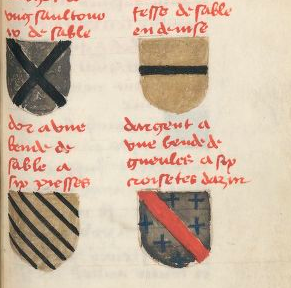 ung saultouo
ir de sable
fesse de sable
en deuise
dor a une
bende de
sable a
six piesses
dargent a
une bende de
gueules a six
croisetes dazur